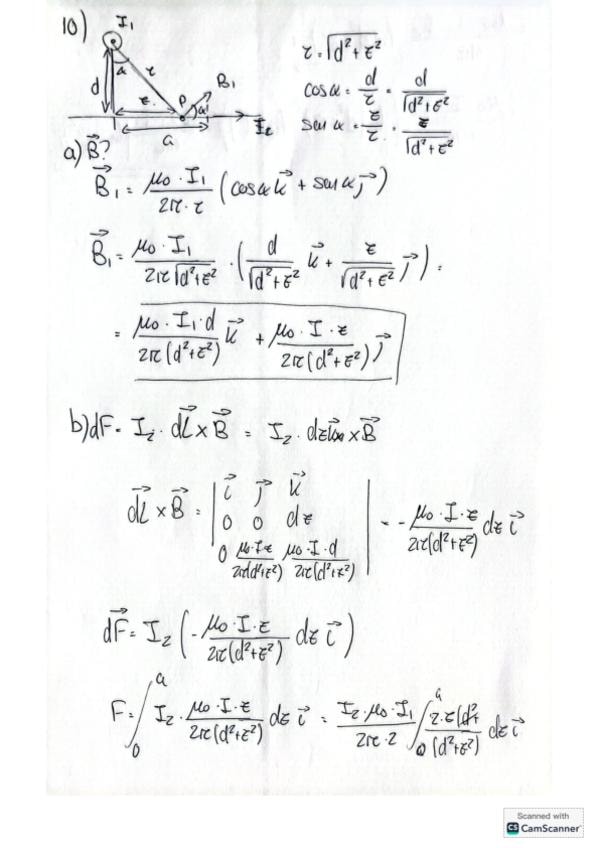 10)
I₁
α
r
d
z
P
B₁
α
I₂
a
r = √(d²+z²)
cosα = d/r = d/√(d²+z²)
sen α = z/r = z/√(d²+z²)
a) B⃗?
B⃗₁ = μ₀·I₁/(2π·r) (cosα k⃗ + senα j⃗)
B⃗₁ = μ₀·I₁/(2π√(d²+z²)) · (d/√(d²+z²) k⃗ + z/√(d²+z²) j⃗) =
= μ₀·I₁·d/(2π(d²+z²)) k⃗ + μ₀·I·z/(2π(d²+z²)) j⃗
b) dF = I₂·dL⃗×B⃗ = I₂·dz ×B⃗
dL⃗×B⃗ = | i⃗ j⃗ k⃗
0 0 dz
0 μ₀·I·z/(2π(d²+z²)) μ₀·I·d/(2π(d²+z²)) | = - μ₀·I·z/(2π(d²+z²)) dz i⃗
dF⃗ = I₂ (- μ₀·I·z/(2π(d²+z²)) dz i⃗)
F = ∫₀ᵃ I₂· μ₀·I·z/(2π(d²+z²)) dz i⃗ = I₂·μ₀·I₁/(2π·2) ∫₀ᵃ 2·z/(d²+z²) dz i⃗
Scanned with
CS CamScanner